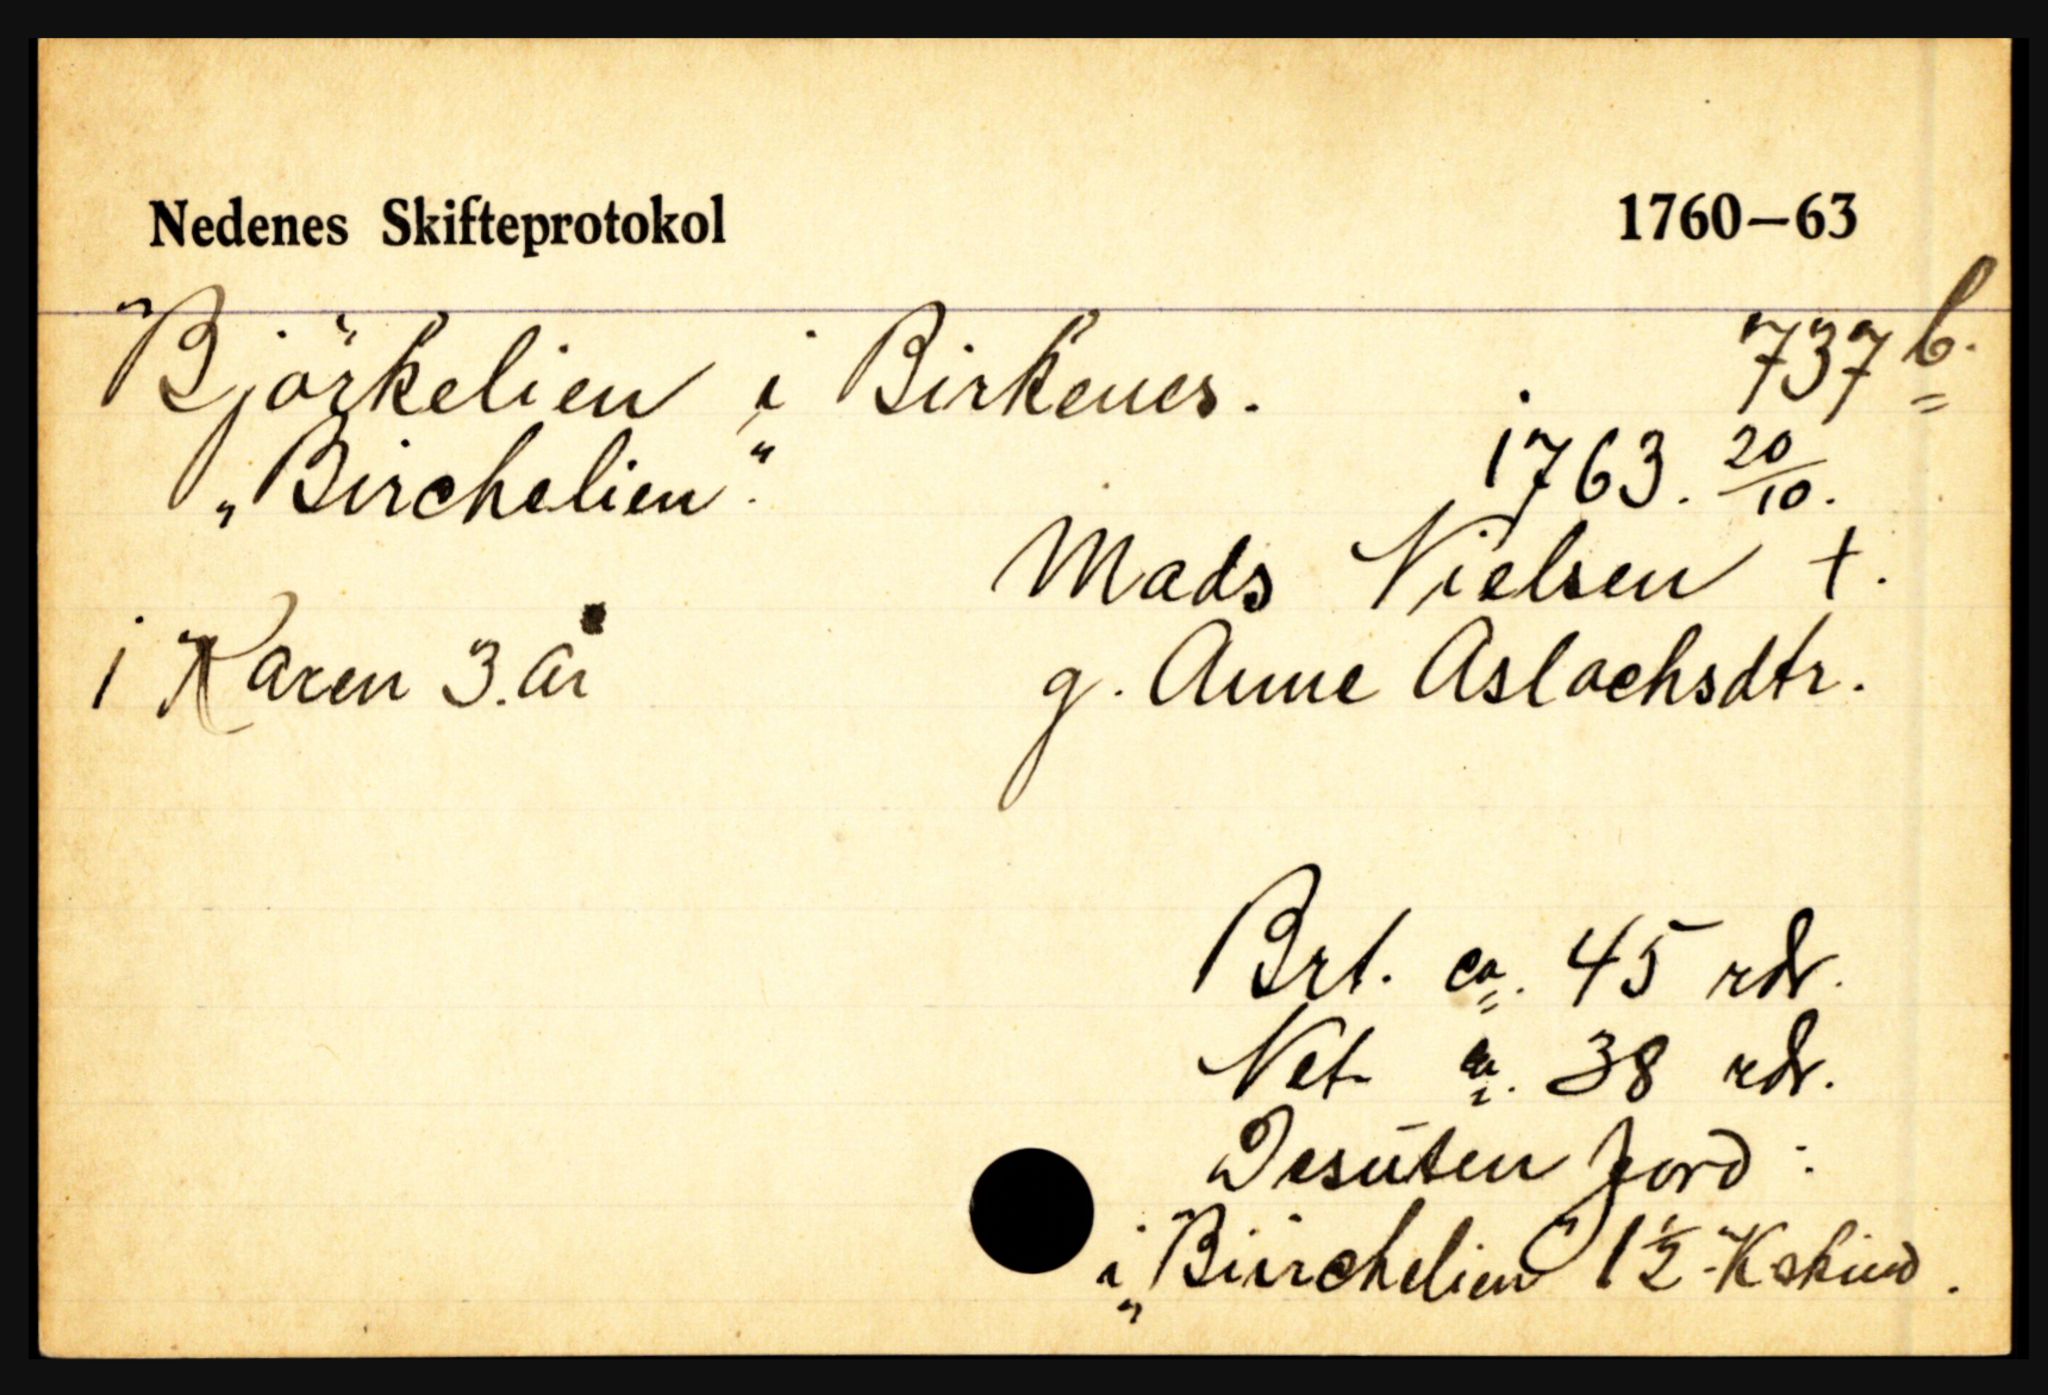 Nedenes Skifteprotokol 1760—63
Björkelien i Birkenes. 737 b.
„Birchelien". 1763. 20/10.
Mads Nielsen †.
1 Karen 3. år g. Anne Aslachsdtr.
Brt. ca. 45 rdr.
Net ca. 38 rdr.
Desuten Jord:
i „Biirchelien" 1½ Kskind.